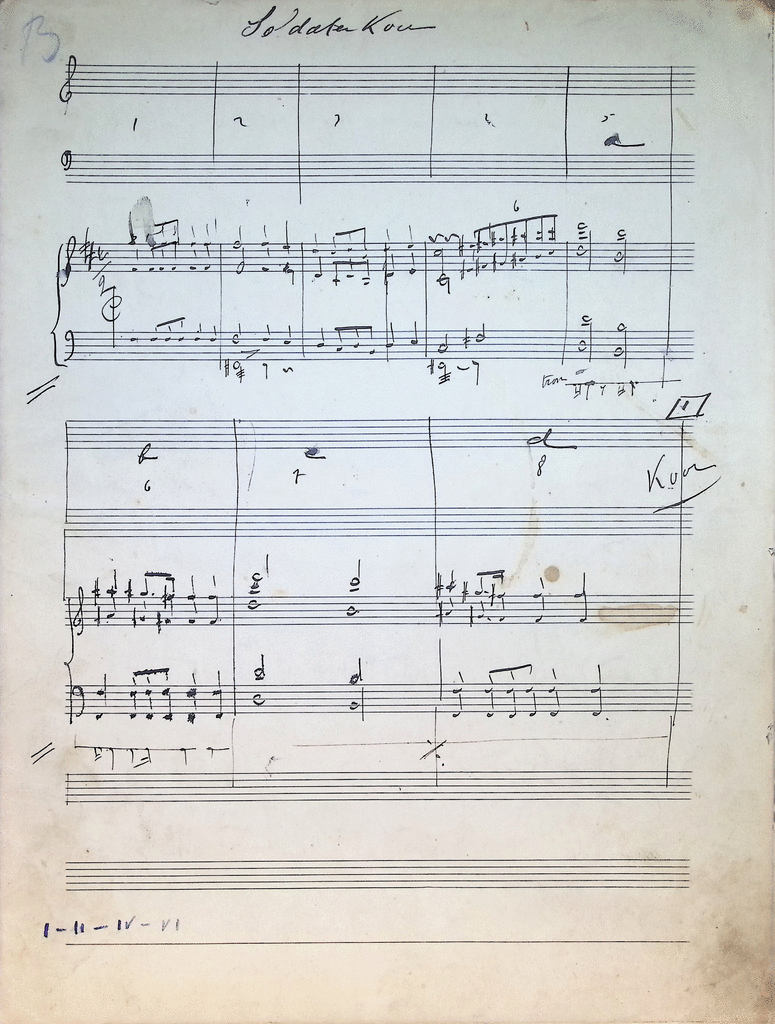 B
Soldaten Koor
1 2 3 4 5
6
trom
1
6 7 8
Koor
I - II - IV - VI